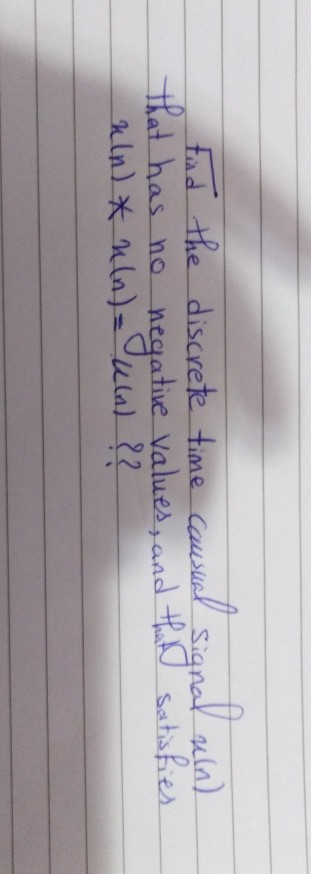 Find the discrete time causual signal x(n)
that has no negative values, and that satisfies
x(n) * x(n) = u(n) ??